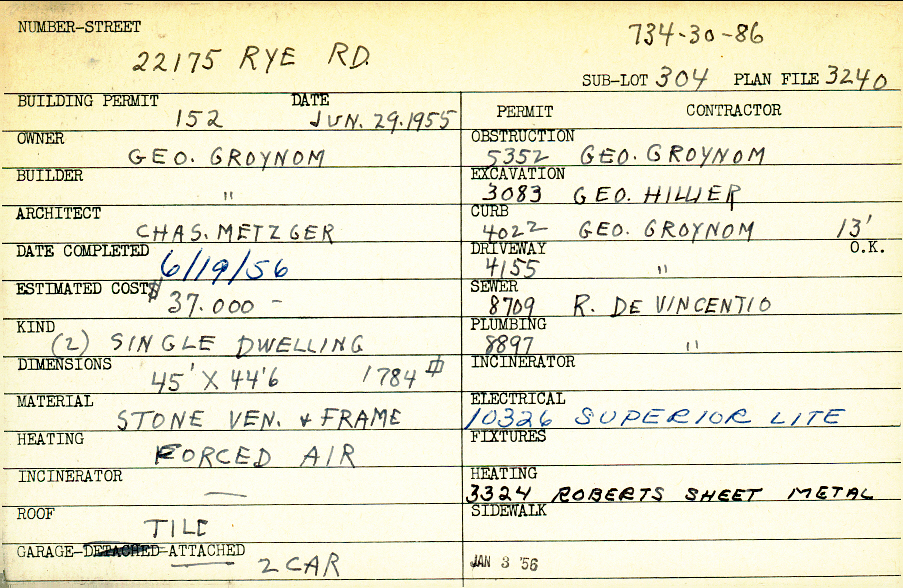 NUMBER-STREET
734-30-86
22175 RYE RD.
SUB-LOT 304 PLAN FILE 3240
BUILDING PERMIT DATE
152 JUN. 29.1955
PERMIT CONTRACTOR
OWNER
GEO. GROYNOM
OBSTRUCTION
5352 GEO. GROYNOM
BUILDER
"
EXCAVATION
3083 GEO. HILLIER
ARCHITECT
CHAS. METZGER
CURB
4022 GEO. GROYNOM 13'
DATE COMPLETED
6/19/56
DRIVEWAY O.K.
4155 "
ESTIMATED COST $
37.000 -
SEWER
8709 R. DE VINCENTIO
KIND
(2) SINGLE DWELLING
PLUMBING
8897 "
DIMENSIONS
45' X 44'6 1784 #
INCINERATOR
MATERIAL
STONE VEN. & FRAME
ELECTRICAL
10326 SUPERIOR LITE
HEATING
FORCED AIR
FIXTURES
INCINERATOR
—
HEATING
3324 ROBERTS SHEET METAL
ROOF
TILE
SIDEWALK
GARAGE-DETACHED-ATTACHED
2 CAR
JAN 3 '56